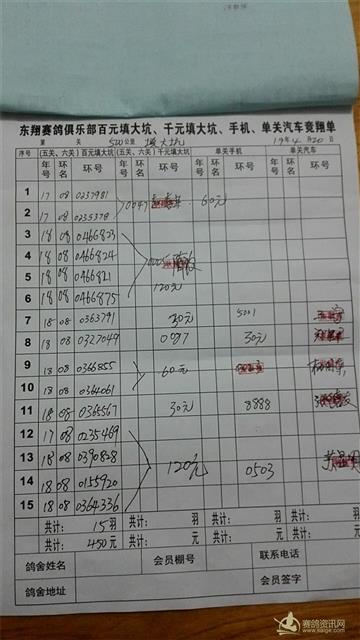 东翔赛鸽俱乐部百元填大坑、千元填大坑、手机、单关汽车竞翔单
第 关 500公里 填大坑 19年4月20日
序号 (五关、六关)百元填大坑 (五关、六关)千元填大坑 单关手机 单关汽车
年号 环号 年号 环号 年号 环号 年号 环号
1 17 08 0237981
2 17 08 0235378 60元
3 18 08 0466823
4 18 08 0466824
5 18 08 0466821
6 18 08 0466875 120元
7 18 08 0363791 30元 5001
8 18 08 0327049 30元
9 18 08 0366855 60元
10 18 08 0364061
11 18 08 0365567 30元 8888
12 17 08 0235469
13 18 08 0390828 120元 0503
14 18 08 0155920
15 18 08 0364336
共计: 15羽 共计: 羽 共计: 羽 共计: 羽
共计: 450元 共计: 元 共计: 元 共计: 元
鸽舍姓名 会员棚号 联系电话
鸽舍地址 会员签字
赛鸽资讯网
www.saige.com